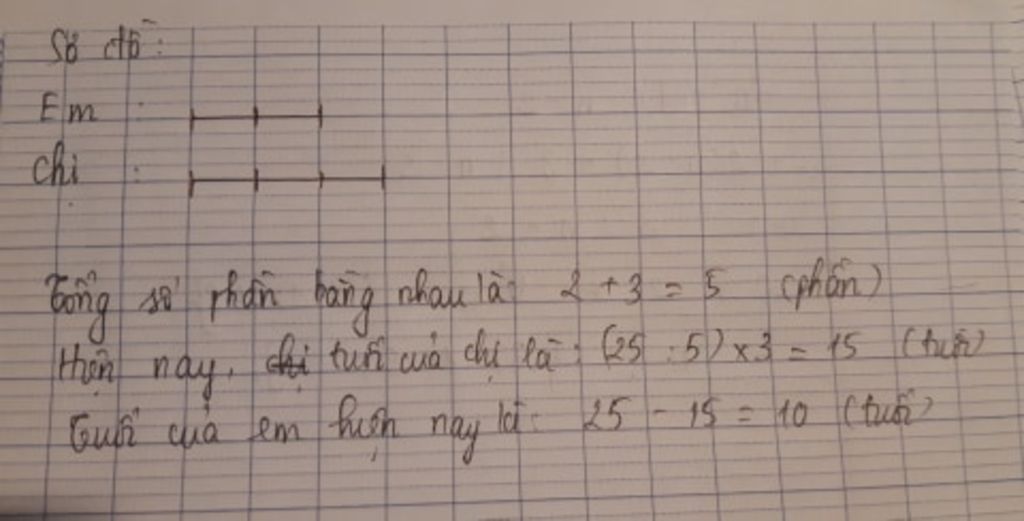 Sơ đồ:
Em :
Chị :
Tổng số phần bằng nhau là: 2 + 3 = 5 (phần)
Hiện nay, tuổi của chị là: (25 : 5) x 3 = 15 (tuổi)
Tuổi của em hiện nay là: 25 - 15 = 10 (tuổi)